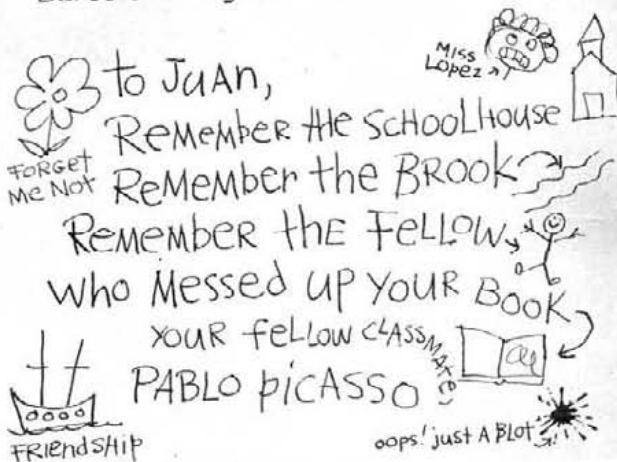 Miss
Lopez
to JuAn,
ReMeMbeR tHe SCHOOLHOUSe
FoRGet
Me Not
ReMeMbeR the BROOK
ReMeMbeR thE FeLLOW
wHo Messed up YOUR BOOK
YOUR feLLOW CLASSMAte,
PABLO piCASSO
FRiendSHip
oops! just A BLot